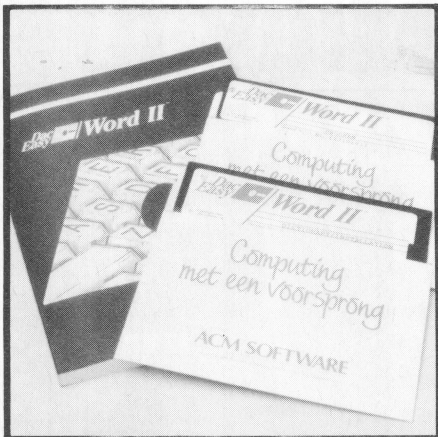 Dac Easy Word II
Dac Easy Word II
Computing
met een voorsprong
Dac Easy Word II
Computing
met een voorsprong
ACM SOFTWARE